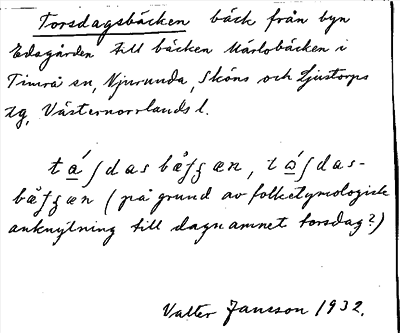 Torsdagsbäcken bäck från byn
Edsgården till bäcken Märlobäcken i
Timrå sn, Njurunda, Sköns och Ljustorps
tg, Västernorrlands l.
tá∫dasbæ̊ʃʒæn, tá∫das-
bæ̊ʃʒæn (på grund av folketymologisk
anknytning till dagnamnet torsdag?)
Valter Jansson 1932.